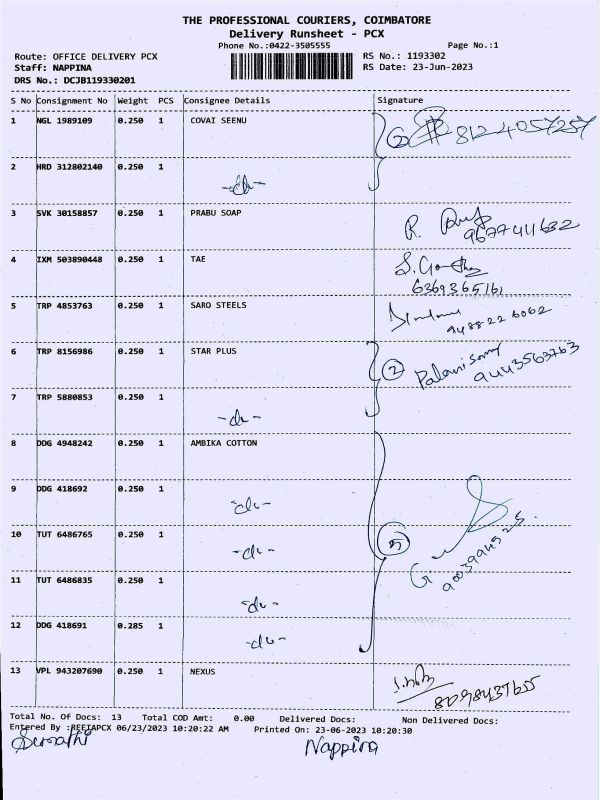 THE PROFESSIONAL COURIERS, COIMBATORE
Delivery Runsheet - PCX
Phone No.:0422-3505555 Page No.:1
Route: OFFICE DELIVERY PCX RS No.: 1193302
Staff: NAPPINA RS Date: 23-Jun-2023
DRS No.: DCJB119330201
S No Consignment No Weight PCS Consignee Details Signature
1 NGL 1989109 0.250 1 COVAI SEENU 2
2 HRD 312802140 0.250 1 -do-
3 SVK 30158857 0.250 1 PRABU SOAP R.
9677441632
4 IXM 503890448 0.250 1 TAE
6369365161
5 TRP 4853763 0.250 1 SARO STEELS
9488226062
6 TRP 8156986 0.250 1 STAR PLUS 2 Palanisamy
9443563763
7 TRP 5880853 0.250 1 -do-
8 DDG 4948242 0.250 1 AMBIKA COTTON
9 DDG 418692 0.250 1 -do-
10 TUT 6486765 0.250 1 -do- 5
11 TUT 6486835 0.250 1 -do-
12 DDG 418691 0.285 1 -do-
13 VPL 943207690 0.250 1 NEXUS
8098437655
Total No. Of Docs: 13 Total COD Amt: 0.00 Delivered Docs: Non Delivered Docs:
Entered By :REETAPCX 06/23/2023 10:20:22 AM Printed On: 23-06-2023 10:20:30
Nappina